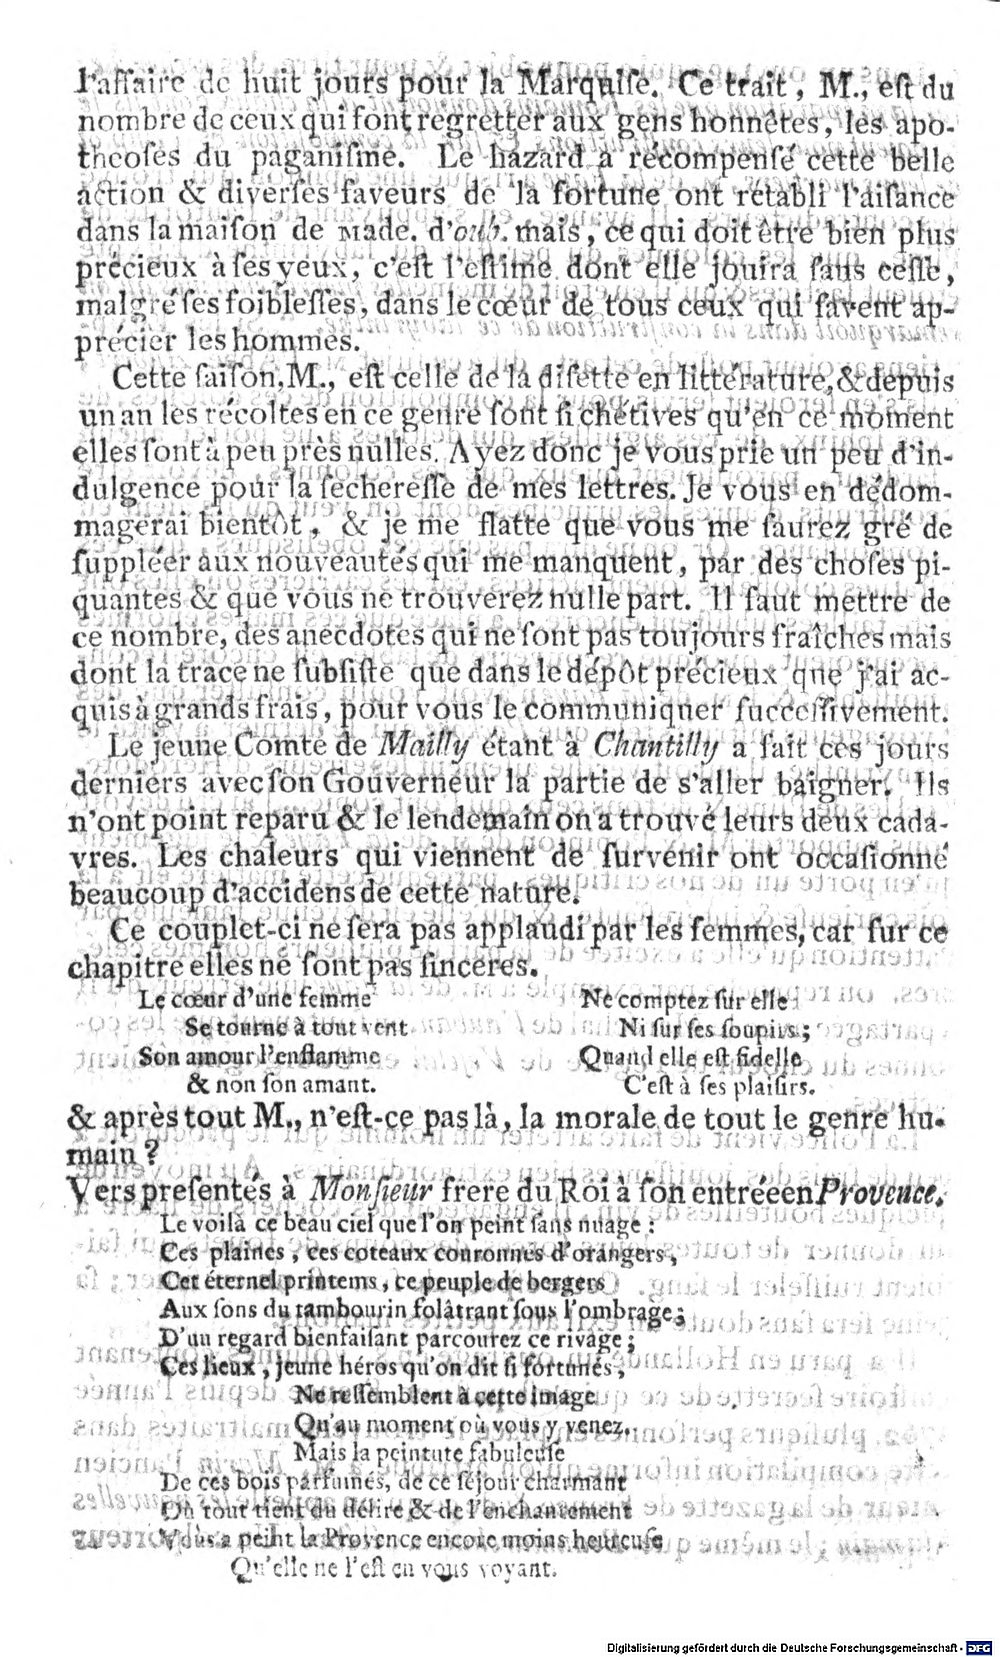 l'affaire de huit jours pour la Marquise. Ce trait, M., eſt du
nombre de ceux qui font regretter aux gens honnêtes, les apo-
theoſes du paganiſme. Le hazard a récompenſé cette belle
action & diverſes faveurs de la fortune ont rétabli l'aiſance
dans la maiſon de Made. d'oub. mais, ce qui doit être bien plus
précieux à ſes yeux, c'eſt l'eſtime dont elle jouira ſans ceſſe,
malgré ſes foibleſſes, dans le cœur de tous ceux qui ſavent ap-
précier les hommes.
Cette ſaiſon, M., eſt celle de la diſette en littérature, & depuis
un an les récoltes en ce genre ſont ſi chétives qu'en ce moment
elles ſont à peu près nulles. Ayez donc je vous prie un peu d'in-
dulgence pour la ſechereſſe de mes lettres. Je vous en dédom-
magerai bientôt, & je me flatte que vous me ſaurez gré de
ſuppléer aux nouveautés qui me manquent, par des choſes pi-
quantes & que vous ne trouverez nulle part. Il faut mettre de
ce nombre, des anecdotes qui ne ſont pas toujours fraîches mais
dont la trace ne ſubſiſte que dans le dépôt précieux que j'ai ac-
quis à grands frais, pour vous le communiquer ſucceſſivement.
Le jeune Comte de Mailly étant à Chantilly a fait ces jours
derniers avec ſon Gouverneur la partie de s'aller baigner. Ils
n'ont point reparu & le lendemain on a trouvé leurs deux cada-
vres. Les chaleurs qui viennent de ſurvenir ont occaſionné
beaucoup d'accidens de cette nature.
Ce couplet-ci ne ſera pas applaudi par les femmes, car ſur ce
chapitre elles ne ſont pas ſinceres.
Le cœur d'une femme
Se tourne à tout vent
Son amour l'enflamme
& non ſon amant.
Ne comptez ſur elle
Ni ſur ſes ſoupirs;
Quand elle eſt fidelle
C'eſt à ſes plaiſirs.
& après tout M., n'eſt-ce pas là, la morale de tout le genre hu-
main?
Vers preſentés à Monſieur frere du Roi à ſon entrée en Provence.
Le voilà ce beau ciel que l'on peint ſans nuage:
Ces plaines, ces coteaux couronnés d'orangers,
Cet éternel printems, ce peuple de bergers
Aux ſons du tambourin folâtrant ſous l'ombrage;
D'un regard bienfaiſant parcourez ce rivage;
Ces lieux, jeune héros qu'on dit ſi fortunés,
Ne reſſemblent à cette image
Qu'au moment où vous y venez.
Mais la peinture fabuleuſe
De ces bois parfumés, de ce ſéjour charmant
Où tout tient du délire & de l'enchantement
Vous a peint la Provence encore moins heureuſe
Qu'elle ne l'eſt en vous voyant.
Digitalisierung gefördert durch die Deutsche Forschungsgemeinschaft - DFG